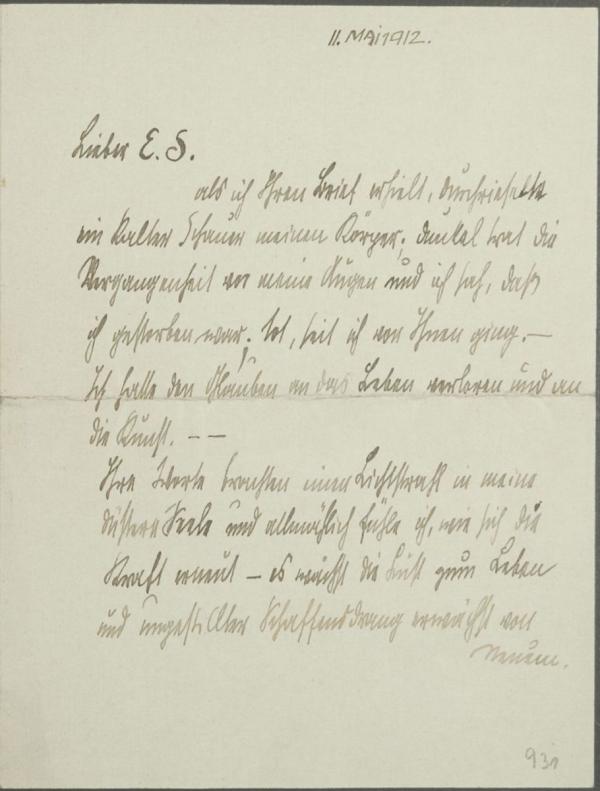 11. MAI 1912.
Lieber E. S.
als ich Ihren Brief erhielt, durchrieselte
ein kalter Schauer meinen Körper; dunkel trat die
Vergangenheit vor meine Augen und ich sah, daß
ich gestorben war; tot, seit ich von Ihnen ging. —
Ich hatte den Glauben an das Leben verloren und an
die Kunst. — —
Ihre Worte brachten einen Lichtstrahl in meine
düstere Seele und allmählich fühle ich, wie sich die
Kraft erneut — es wächst die Lust zum Leben
und ungestillter Schaffensdrang erwächst von
Neuem.
931